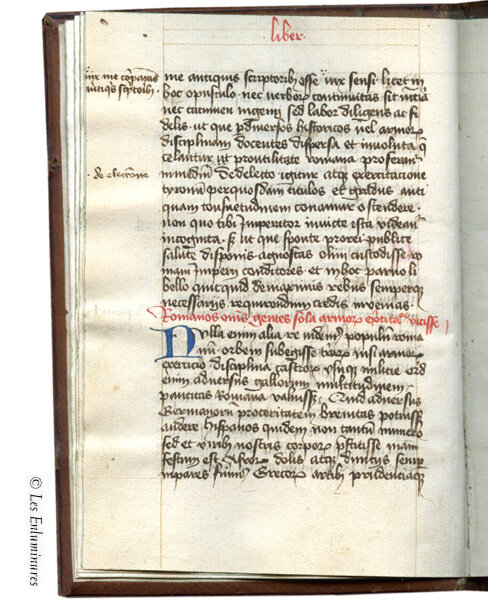 liber.
me antiquis scriptorib; esse iur sensi. licet in
hoc opusculo nec verborꝝ concinnitas sit
nec acumen ingenij sed labor diligens ac fi
delis. ut que ꝑ diversos historicos vel armorꝝ
disciplinam docentes dispersa et involuta
celantur ut pro utilitate romana proferant̃
in mediũ. De delectu igitur atqꝫ exercitatione
tyronum per quosdam titulos et gradus anti
quam consuetudinem conamur ostendere.
non quo tibi Imperator invicte ista videant̃
incognita. sꝫ ut que sponte pro rei publice
salute disponis agnoscas olim custodisse ro
mani Imperij conditores. et in hoc parvo li
bello quicquid de maximis rebus semperqꝫ
necessarijs requirendum credis invenias.
Romanos õnis gentes sola armorꝝ vicisse
Nulla enim alia re videmꝰ populũ roma
num orbem subegisse terrarꝝ nisi armorꝝ
exercicio disciplina castrorꝝ usuqꝫ militie. Quid
enim adversus gallorum multitudinem
paucitas Romana valuissꝫ. Quid adversus
Germanorꝝ proceritatem brevitas potuissꝫ
audere hispanos quidem non tantũ numero
sed et viribꝫ nostris corporꝝ prestitisse mani
festum est. Afrorꝝ dolis atqꝫ divitijs semꝑ
impares fuimꝰ. Grecorꝝ artibꝫ prudenciaqꝫ
de electione
© Les Enluminures